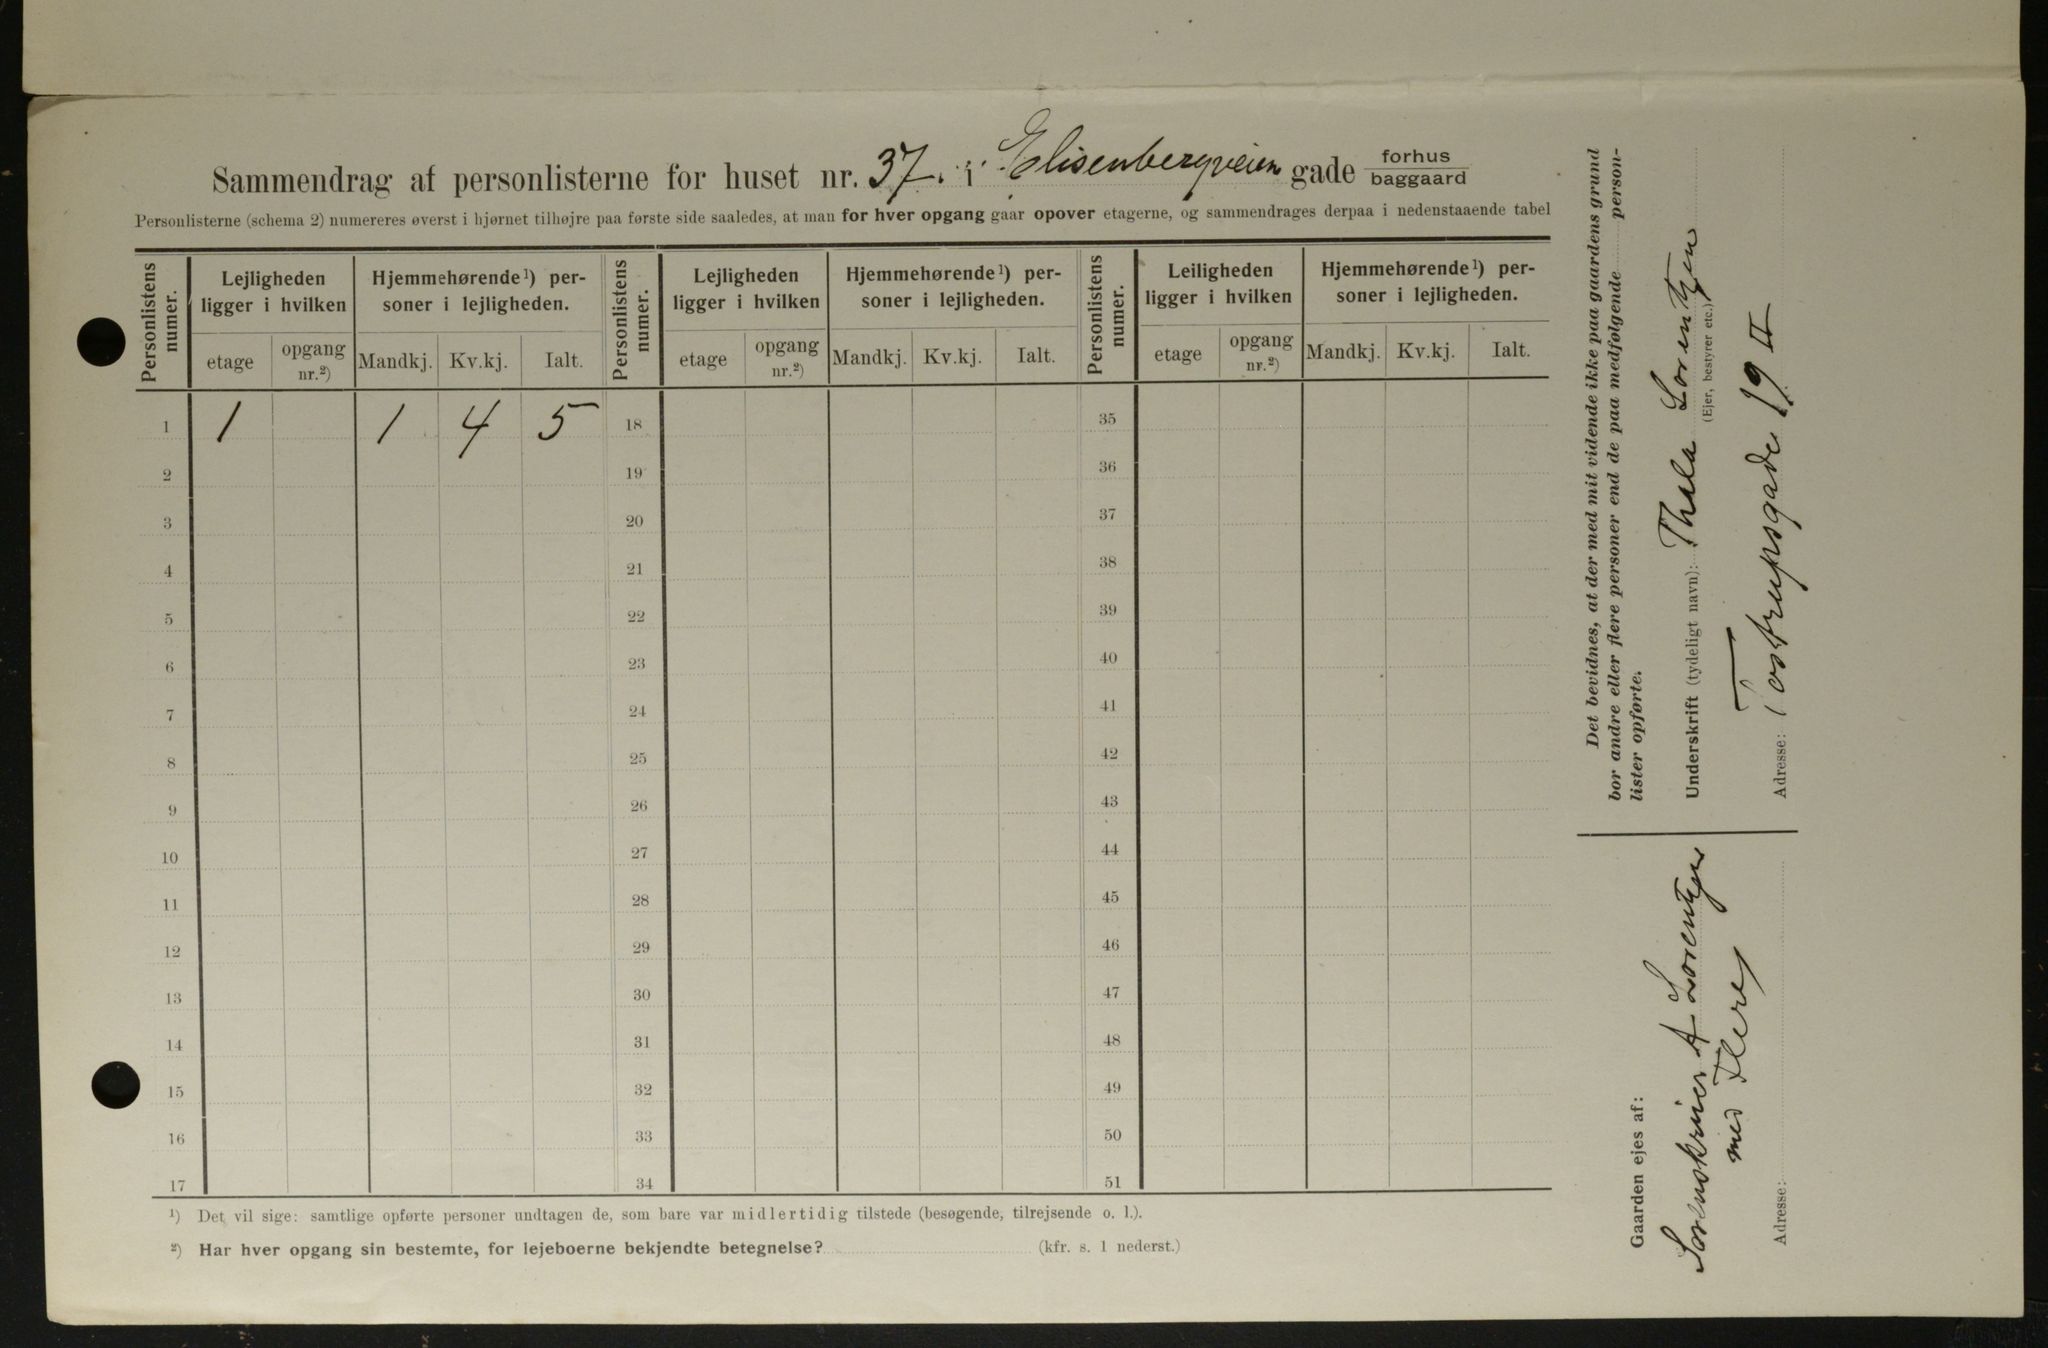 Sammendrag af personlisterne for huset nr. 37. i Elisenbergveien gade forhus baggaard
Personlisterne (schema 2) numereres øverst i hjørnet tilhøjre paa første side saaledes, at man for hver opgang gaar opover etagerne, og sammendrages derpaa i nedenstaaende tabel
Personlistens numer. Lejligheden ligger i hvilken Hjemmehørende¹) personer i lejligheden. Personlistens numer. Lejligheden ligger i hvilken Hjemmehørende¹) personer i lejligheden. Personlistens numer. Leiligheden ligger i hvilken Hjemmehørende¹) personer i lejligheden.
etage opgang nr.²) Mandkj. Kv.kj. Ialt. etage opgang nr.²) Mandkj. Kv.kj. Ialt. etage opgang nr.²) Mandkj. Kv.kj. Ialt.
1 1 1 4 5 18 35
2 19 36
3 20 37
4 21 38
5 22 39
6 23 40
7 24 41
8 25 42
9 26 43
10 27 44
11 28 45
12 29 46
13 30 47
14 31 48
15 32 49
16 33 50
17 34 51
¹) Det vil sige: samtlige opførte personer undtagen de, som bare var midlertidig tilstede (besøgende, tilrejsende o. l.).
²) Har hver opgang sin bestemte, for lejeboerne bekjendte betegnelse? (kfr. s. 1 nederst.)
Det bevidnes, at der med mit vidende ikke paa gaardens grund
bor andre eller flere personer end de paa medfølgende person-
lister opførte.
Underskrift (tydeligt navn): Thala Lorentzen
(Ejer, bestyrer etc.)
Adresse: Tostrupsgade 19 II
Gaarden ejes af:
A Lorentzen
med Flere
Adresse: